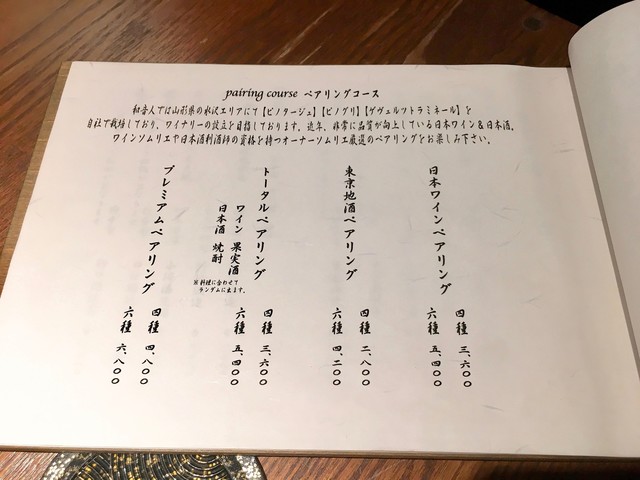 pairing course ペアリングコース
和音人では山形県の水沢エリアにて【ピノタージュ】【ピノグリ】【ゲヴュルツトラミネール】を
自社で栽培しており、ワイナリーの設立を目指しております。近年、非常に品質が向上している日本ワイン&日本酒。
ワインソムリエや日本酒利酒師の資格を持つオーナーソムリエ厳選のペアリングをお楽しみ下さい。
日本ワインペアリング
四種 三、六〇〇
六種 五、四〇〇
東京地酒ペアリング
四種 二、八〇〇
六種 四、二〇〇
トータルペアリング
ワイン 果実酒
日本酒 焼酎
※料理に合わせて
ランダムに出ます。
四種 三、六〇〇
六種 五、四〇〇
プレミアムペアリング
四種 四、八〇〇
六種 六、八〇〇